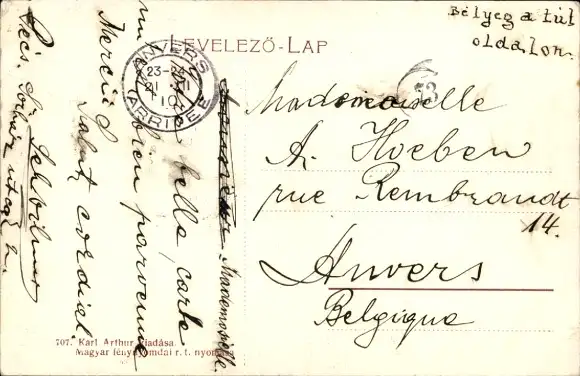 Bélyeg a túl
oldalon.
LEVELEZŐ-LAP
ANVERS
ARRIVEE
73
Mademoiselle
A. Hoeben
rue Rembrandt
14.
Anvers
Belgique
Mademoiselle.
bella carte
bien parvenue
Merci
Salut cordial
Pécs.
707. Karl Arthur kiadása.
Magyar fénynyomdai r. t. nyomása